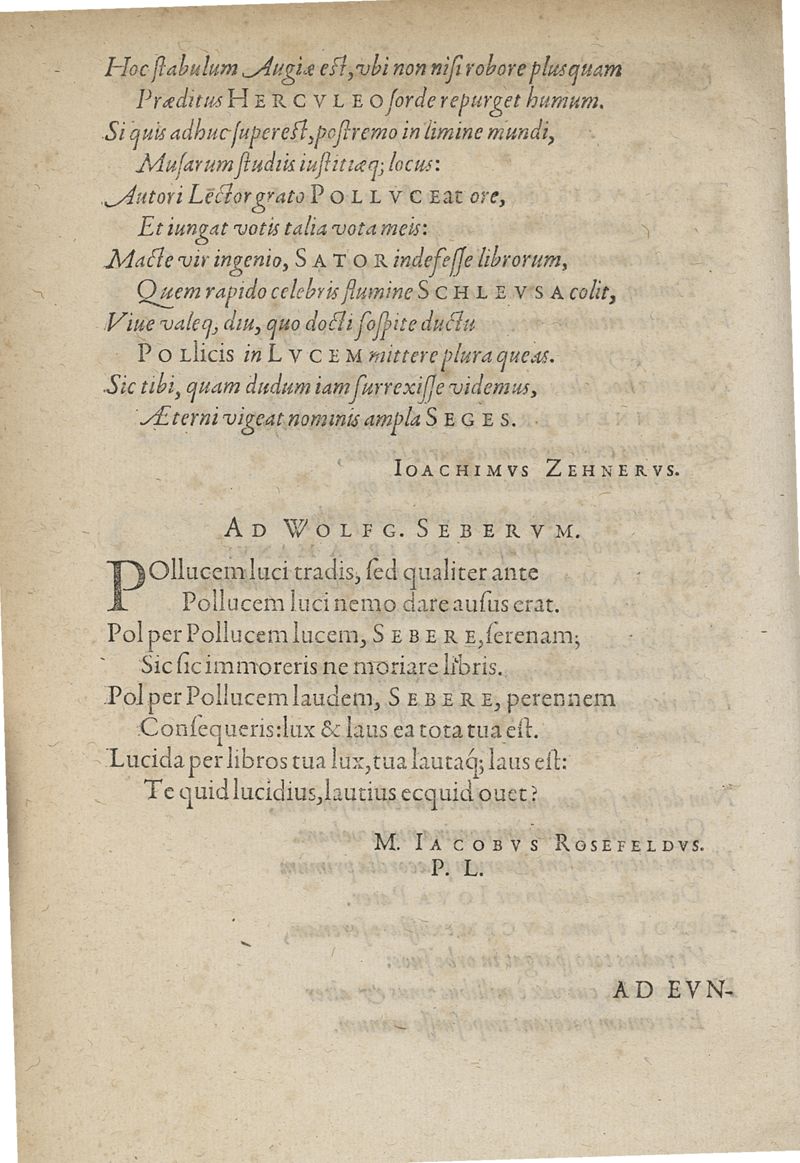 Hoc ſtabulum Augiæ eſt, vbi non niſi robore plus quam
Præditus HERCVLEO ſorde repurget humum.
Si quis adhuc ſupereſt, poſtremo in limine mundi,
Muſarum ſtudiis iuſtitiæq; locus:
Autori Lēctor grato POLLVCEat ore,
Et iungat votis talia vota meis:
Macte vir ingenio, SATOR indefeſſe librorum,
Quem rapido celebris flumine SCHLEVSA colit,
Viue valeq, diu, quo docti ſoſpite ductu
POLlicis in LVCEM mittere plura queas.
Sic tibi, quam dudum iam ſurrexiſſe videmus,
Æterni vigeat nominis ampla SEGES.
IOACHIMVS ZEHNERVS.
AD WOLFG. SEBERVM.
POllucem luci tradis, ſed qualiter ante
Pollucem luci nemo dare auſus erat.
Pol per Pollucem lucem, SEBERE, ſerenam;
Sic ſic immoreris ne moriare libris.
Pol per Pollucem laudem, SEBERE, perennem
Conſequeris: lux & laus ea tota tua eſt.
Lucida per libros tua lux, tua lautaq́; laus eſt:
Te quid lucidius, lautius ecquid ouet?
M. IACOBVS ROSEFELDVS.
P. L.
AD EVN-